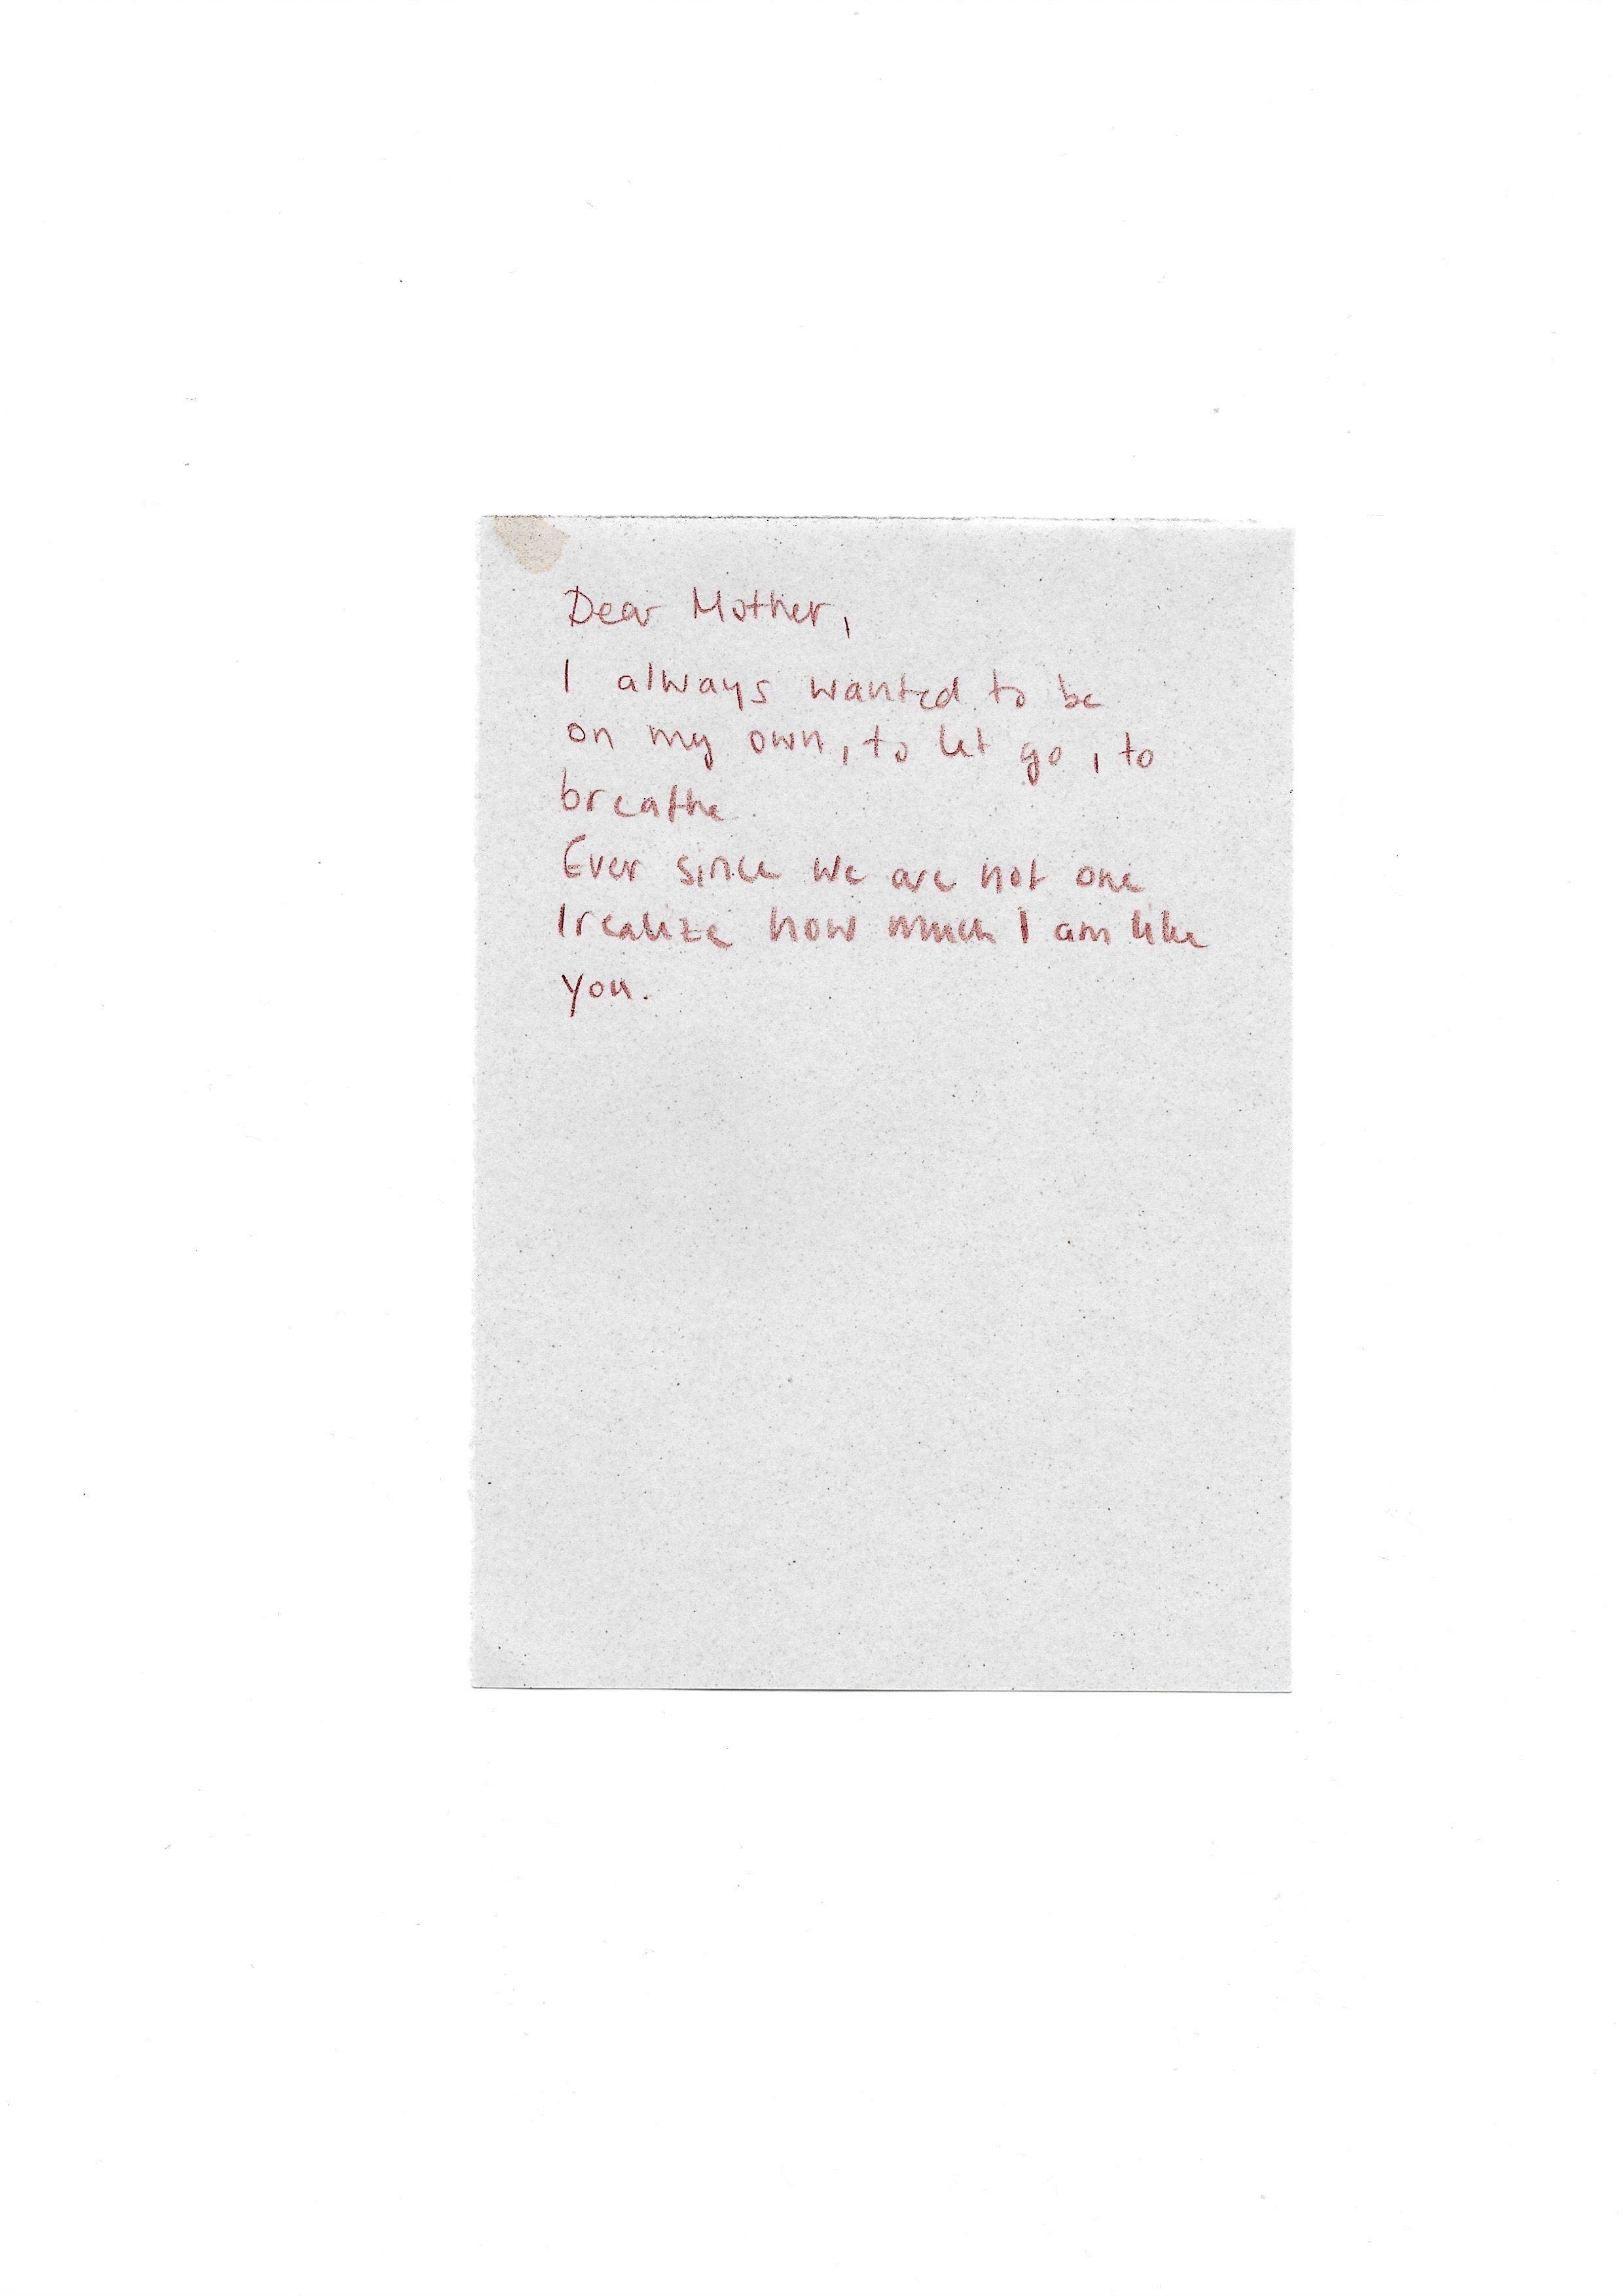 Dear Mother,
I always wanted to be
on my own, to let go, to
breathe.
Ever since we are not one
I realize how much I am like
you.